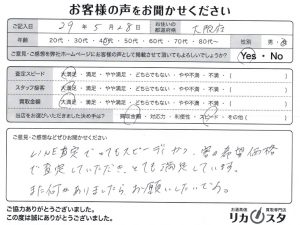 お客様の声をお聞かせください
ご記入日 29年5月28日 お住いの都道府県 大阪府
年齢 20代・30代・40代・50代・60代・70代・80代〜 性別 男・
ご意見・ご感想を弊社ホームページにお客様の声として掲載させて頂いてもよろしいでしょうか? Yes・No
査定スピード 大満足・満足・やや満足・どちらでもない・やや不満・不満・( )
スタッフ接客 大満足・満足・やや満足・どちらでもない・やや不満・不満・( )
買取金額 大満足・満足・やや満足・どちらでもない・やや不満・不満・( )
当店をお選びいただきました決め手は? 買取金額・対応力・利便性・スピード・その他( )
ご意見・ご感想などぜひお聞かせください
LINE査定でとてもスピーディかつ、 希望価格
で査定していただき、とても満足しています。
また何かありましたらお願いしたいです。
ご協力ありがとうございました。
この度は誠にありがとうございました。
お酒高価 買取専門店
リカスタ